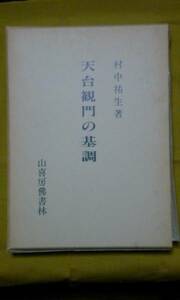 村中祐生著
天台観門の基調
山喜房佛書林